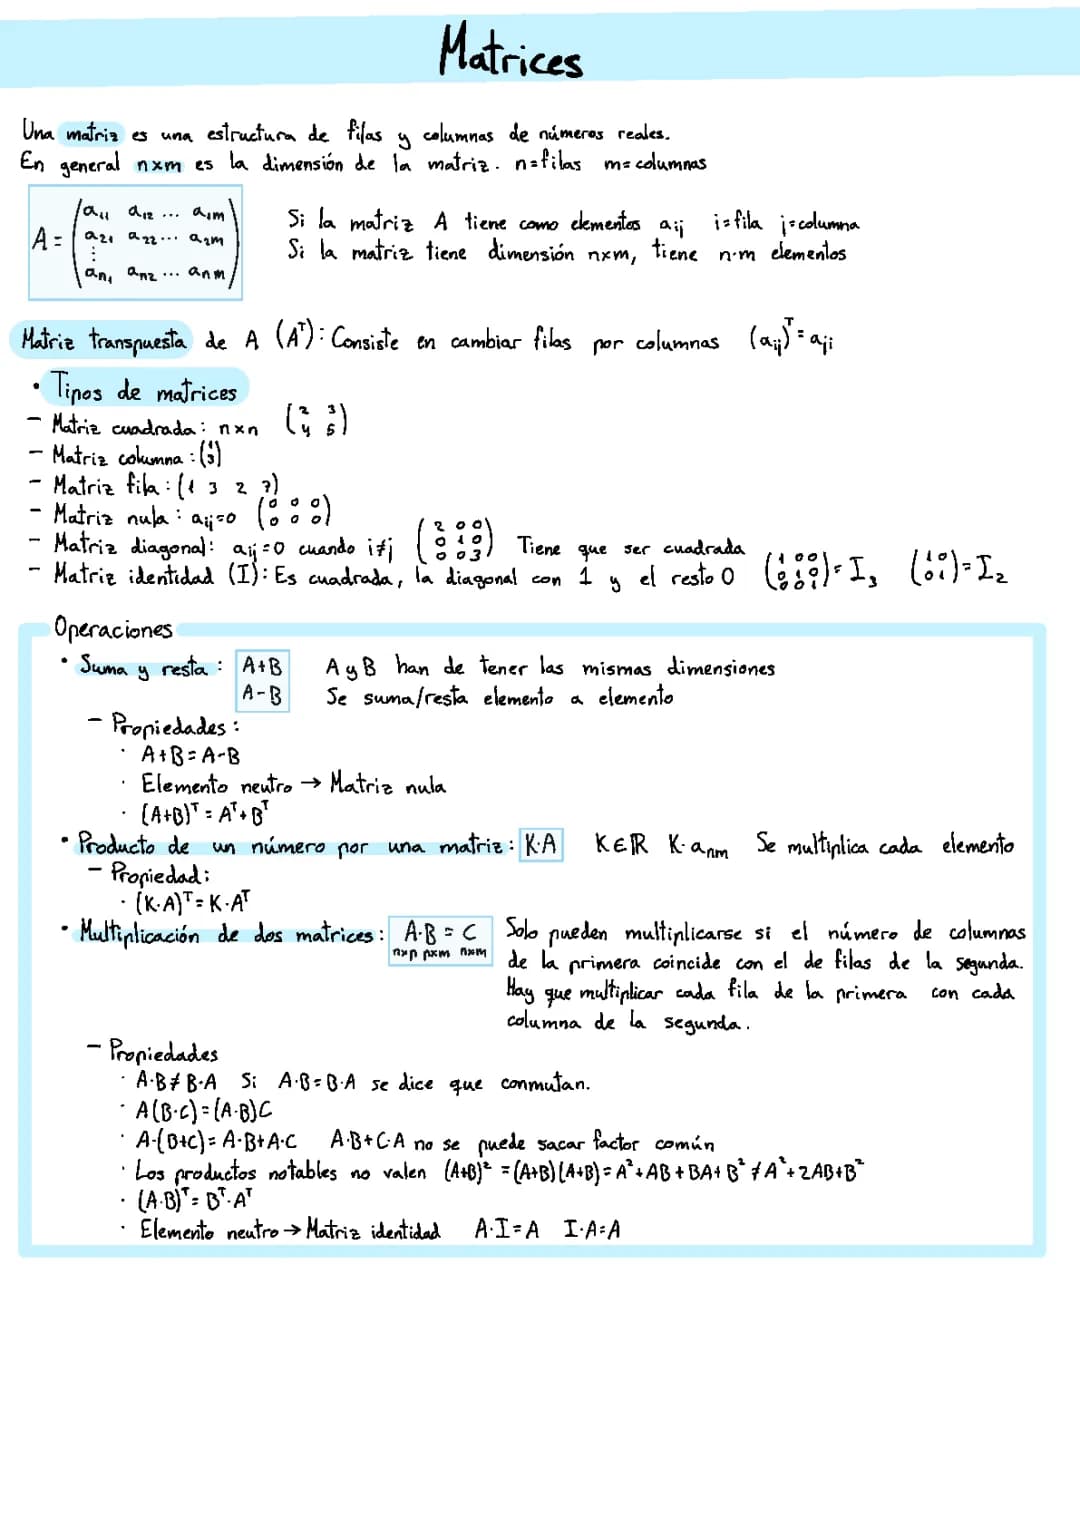 Matrices
Una matriz es una estructura de filas y columnas de números reales.
En general nxm es la dimensión de la matriz. n=filas m=columnas
A = (a11 a12 ... a1m
a21 a22 ... a2m
⋮
an1 an2 ... anm)
Si la matriz A tiene como elementos aij i=fila j=columna
Si la matriz tiene dimensión nxm, tiene n·m elementos
Matriz transpuesta de A (Aᵀ): Consiste en cambiar filas por columnas (aij)ᵀ=aji
• Tipos de matrices
- Matriz cuadrada: nxn (2 3 / 4 5)
- Matriz columna: (1 / 3)
- Matriz fila: (1 3 2 7)
- Matriz nula: aij=0 (0 0 0 / 0 0 0)
- Matriz diagonal: aij=0 cuando i≠j (2 0 0 / 0 1 0 / 0 0 3) Tiene que ser cuadrada
- Matriz identidad (I): Es cuadrada, la diagonal con 1 y el resto 0 (1 0 0 / 0 1 0 / 0 0 1)=I3 (1 0 / 0 1)=I2
Operaciones
• Suma y resta: A+B A y B han de tener las mismas dimensiones
A-B Se suma/resta elemento a elemento
- Propiedades:
· A+B=A-B
· Elemento neutro → Matriz nula
· (A+B)ᵀ = Aᵀ+Bᵀ
• Producto de un número por una matriz: K·A K∈ℝ K·anm Se multiplica cada elemento
- Propiedad:
· (K·A)ᵀ= K·Aᵀ
• Multiplicación de dos matrices: A·B = C Solo pueden multiplicarse si el número de columnas
nxp pxm nxm de la primera coincide con el de filas de la segunda.
Hay que multiplicar cada fila de la primera con cada
columna de la segunda.
- Propiedades
· A·B≠B·A Si A·B=B·A se dice que conmutan.
· A(B·C)=(A·B)C
· A·(B+C)= A·B+A·C A·B+C·A no se puede sacar factor común
· Los productos notables no valen (A+B)² =(A+B)(A+B)=A²+AB+BA+B²≠A²+2AB+B²
· (A·B)ᵀ= Bᵀ·Aᵀ
· Elemento neutro → Matriz identidad A·I=A I·A=A